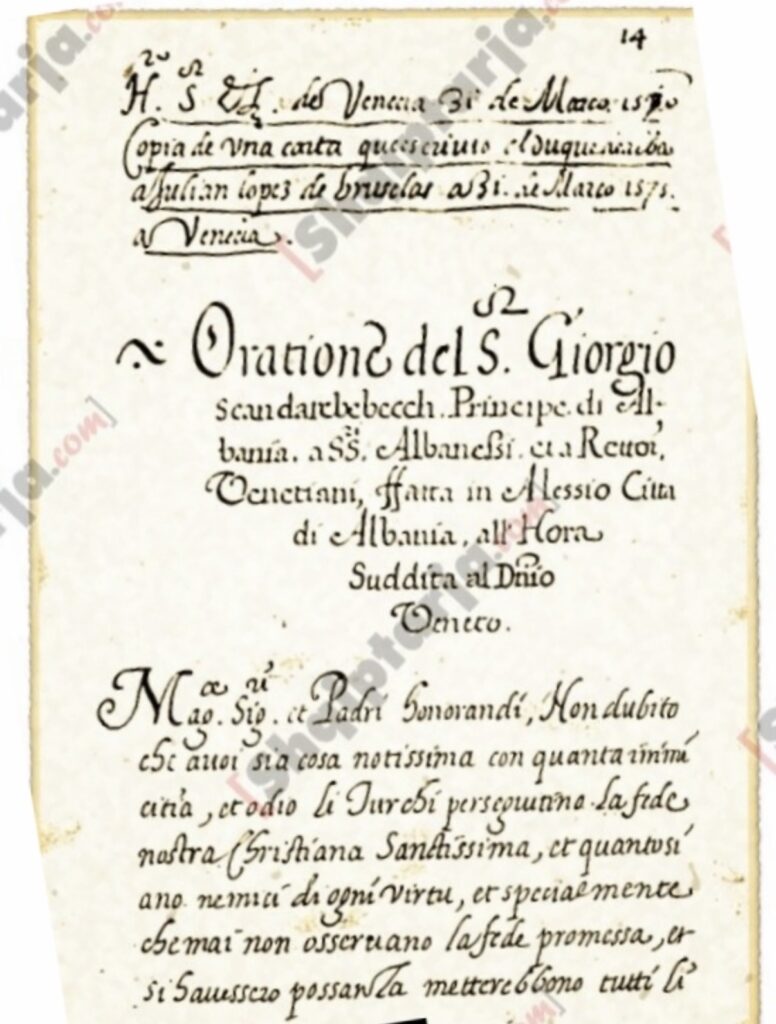 14
H. S de Venecia 31 de Março 1570
Copia de vna carta que escriuio el duque de alba
a Julian lopez de bruselas a 31. de Março 1571.
a Venecia.
Oratione del S.or Giorgio
Scandarbebecch. Principe. di Al-
bania. a SS.ri Albanessi. et a Rettori,
Venetiani, ffatta in Alessio Citta
di Albania, all' Hora
Suddita al Dnīo
Veneto.
Mag.ce Sig.ri et Padri honorandi, Non dubito
che a uoi sia cosa notissima con quanta inimi
citia, et odio li Turchi perseguitino la fede
nostra Christiana Sanctissima, et quanto si
ano nemici di ogni virtu, et specialmente
che mai non osseruano la fede promessa, et
si hauessero possanza metterebbono tutti li
[Shqiptarja.com]